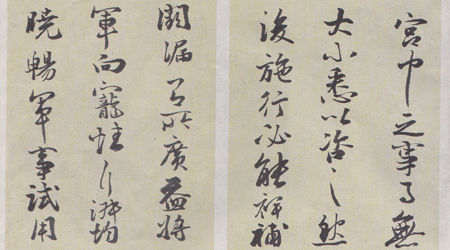 宮中之事〻無
大小悉以咨之然
後施行必能裨補
闕漏有所廣益將
軍向寵性行淑均
曉暢軍事試用